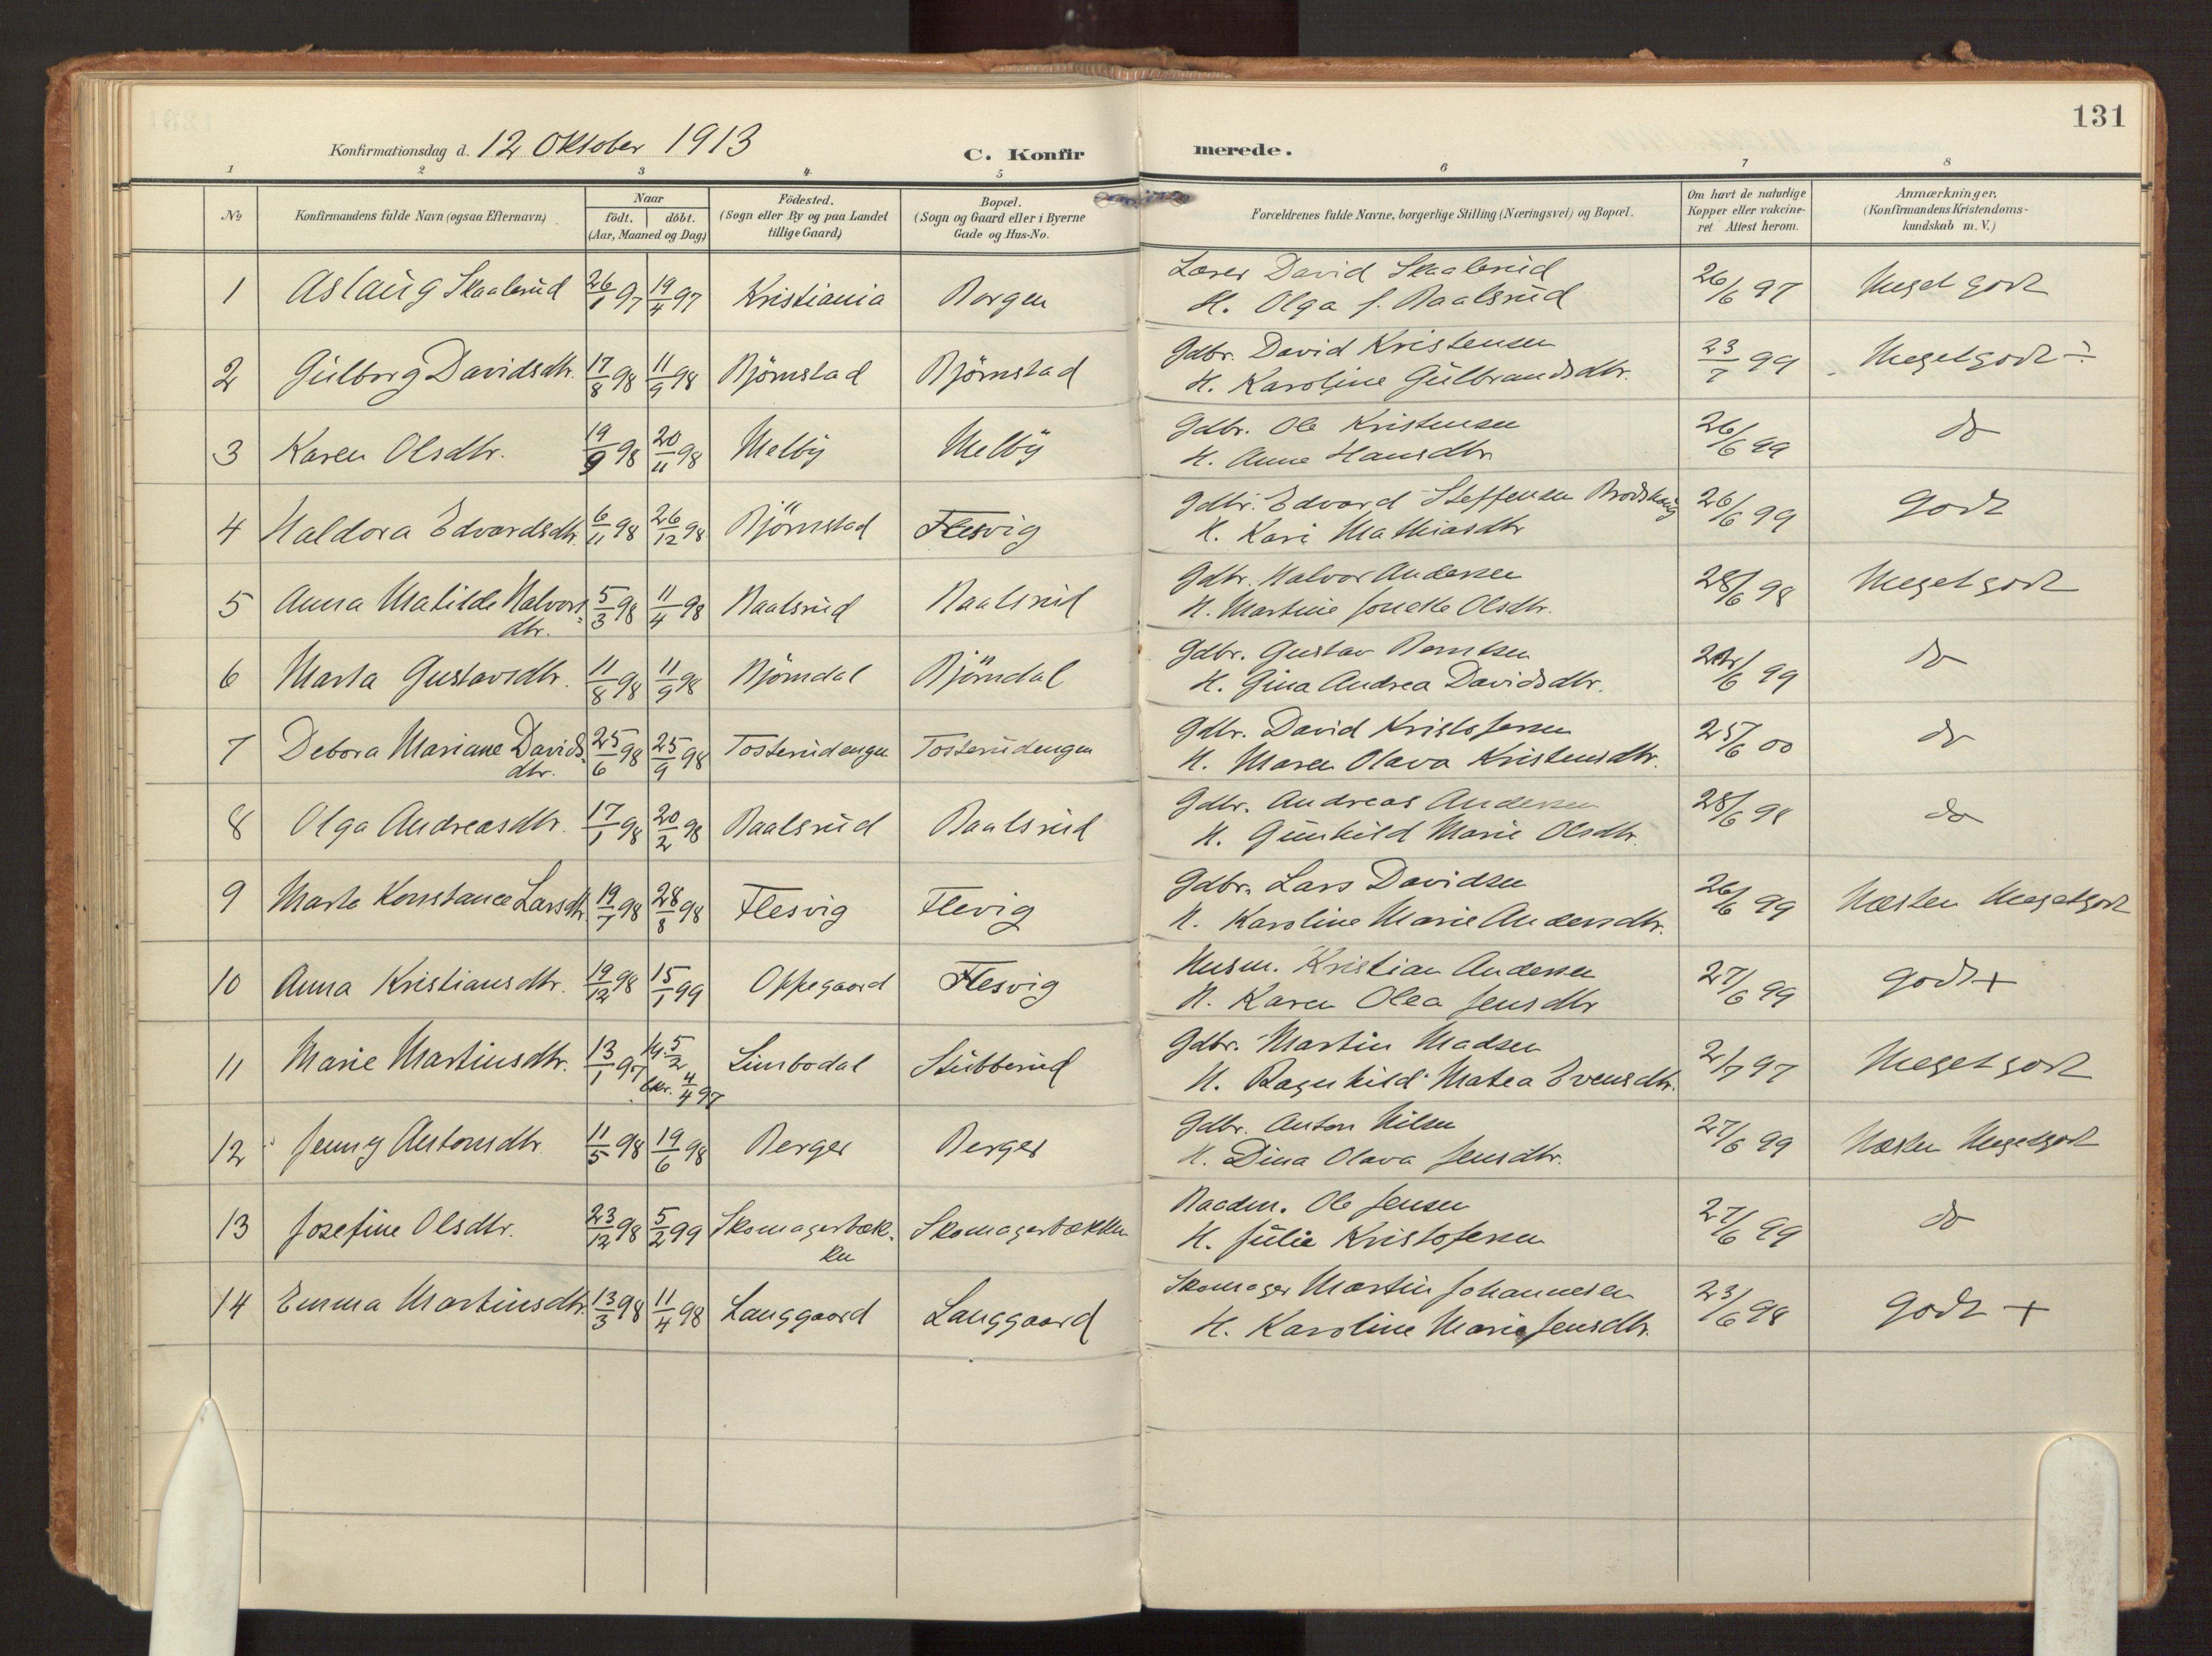 131
Konfirmationsdag d. 12 Oktober 1913
C. Konfirmerede.
1 2 3 4 5 6 7 8
No
Konfirmandens fulde Navn (ogsaa Efternavn)
Naar
födt. döbt.
(Aar, Maaned og Dag)
Födested.
(Sogn eller By og paa Landet
tillige Gaard)
Bopæl.
(Sogn og Gaard eller i Byerne
Gade og Hus-No.
Forældrenes fulde Navne, borgerlige Stilling (Næringsvei) og Bopæl.
Om havt de naturlige
Kopper eller vakcine-
ret Attest herom.
Anmærkninger,
(Konfirmandens Kristendoms-
kundskab m. V.)
1 Aslaug Skaalerud 26/1 97 19/4 97 Kristiania Borgen Lærer David Skaalerud 26/6 97 Meget godt
H. Olga f. Baalsrud
2 Gulborg Davidsdtr. 17/8 98 11/9 98 Björnstad Björnstad Gdbr. David Kristensen 23/7 99 Megetgodt ÷
H. Karoline Gulbrandsdtr.
3 Karen Olsdtr. 19/9 98 20/11 98 Melby Melby Gdbr. Ole Kristensen 26/6 99 do
H. Anne Hansdtr.
4 Haldora Edvardsdtr. 6/11 98 26/12 98 Björnstad Flesvig Gdbr. Edvard Steffensen Brodshaug 26/6 99 Godt
H. Kari Mathiasdtr
5 Anna Matilde Halvors- 5/3 98 11/4 98 Baalsrud Baalsrud Gdbr. Halvor Andersen 28/6 98 Meget godt
dtr. H. Martine Jonette Olsdtr.
6 Marta Gustavsdtr. 11/8 98 11/9 98 Björndal Björndal Gdbr. Gustav Berntsen /6 99 do
H. Gina Andrea Davidsdtr.
7 Debora Mariane Davids- 25/6 98 25/9 98 Tosterudengen Tosterudengen Gdbr. David Kristofersen 25/6 00 do
dtr. H. Maren Olava Kristensdtr.
8 Olga Andreasdtr. 17/1 98 20/2 98 Baalsrud Baalsrud Gdbr. Andreas Andersen 28/6 98 do
H. Gunhild Marie Olsdtr.
9 Marta Konstance Larsdtr 19/7 98 28/8 98 Flesvig Flevig Gdbr. Lars Davidsen 26/6 99 Næsten Megetgodt
H. Karoline Marie Andersdtr.
10 Anna Kristiansdtr. 19/12 98 15/1 99 Oppegaard Flesvig Husm. Kristian Andersen 27/6 99 Godt +
H. Karen Olea Jensdtr
11 Marie Martinsdtr. 13/1 97 5/2 Limbodal Stubberud Gdbr. Martin Madsen 2/7 97 Meget godt
4/4 97 H. Ragnhild Matea Evensdtr.
12 Jenny Antonsdtr. 11/5 98 19/6 98 Berger Berger Gdbr. Anton Nilsen 27/6 99 Næsten Megetgodt
H. Dina Olava Jensdtr.
13 Josefine Olsdtr. 23/12 98 5/2 99 Skomagerbæk- Skomagerbækken Baadm. Ole Jensen 27/6 99 do
ken H. Julie Kristofersen
14 Emma Martinsdtr. 13/3 98 11/4 98 Langgaard Langgaard Skomager Martin Johannesen 23/6 98 Godt +
H. Karoline Marie Jensdtr.